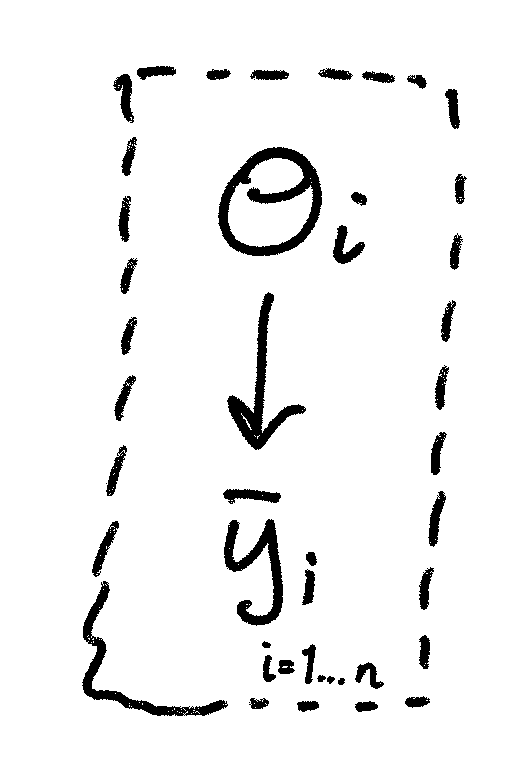 θi
ȳi
i=1...n